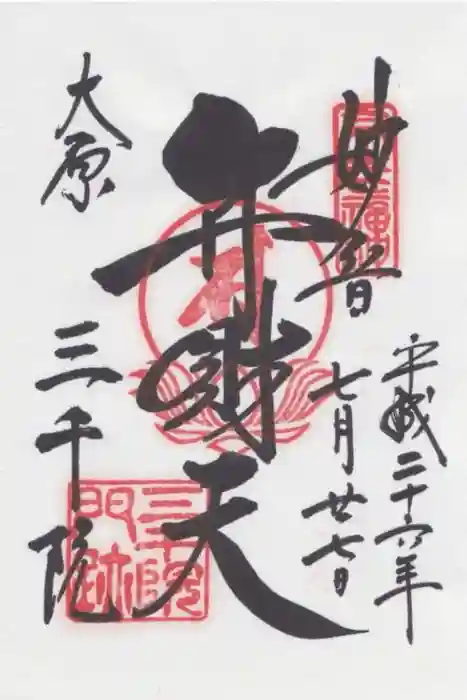 平成二十六年
七月廿七日
妙音
弁財天
大原
三千院
三千院門跡